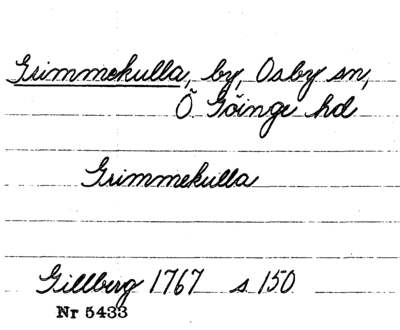 Grimmekulla, by, Osby sn,
Ö Göinge hd
Grimmekulla
Gillberg 1767 s 150
Nr 5433